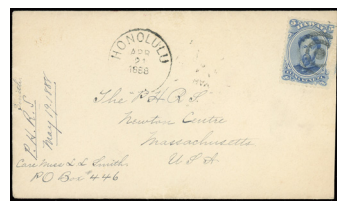 HONOLULU
APR
21
1888
The P.H.R.S.
Newton Centre
Massachusetts
U.S.A.
P.H.R.S.
May 19, 1888
Care Miss L L Smith
PO Box #446